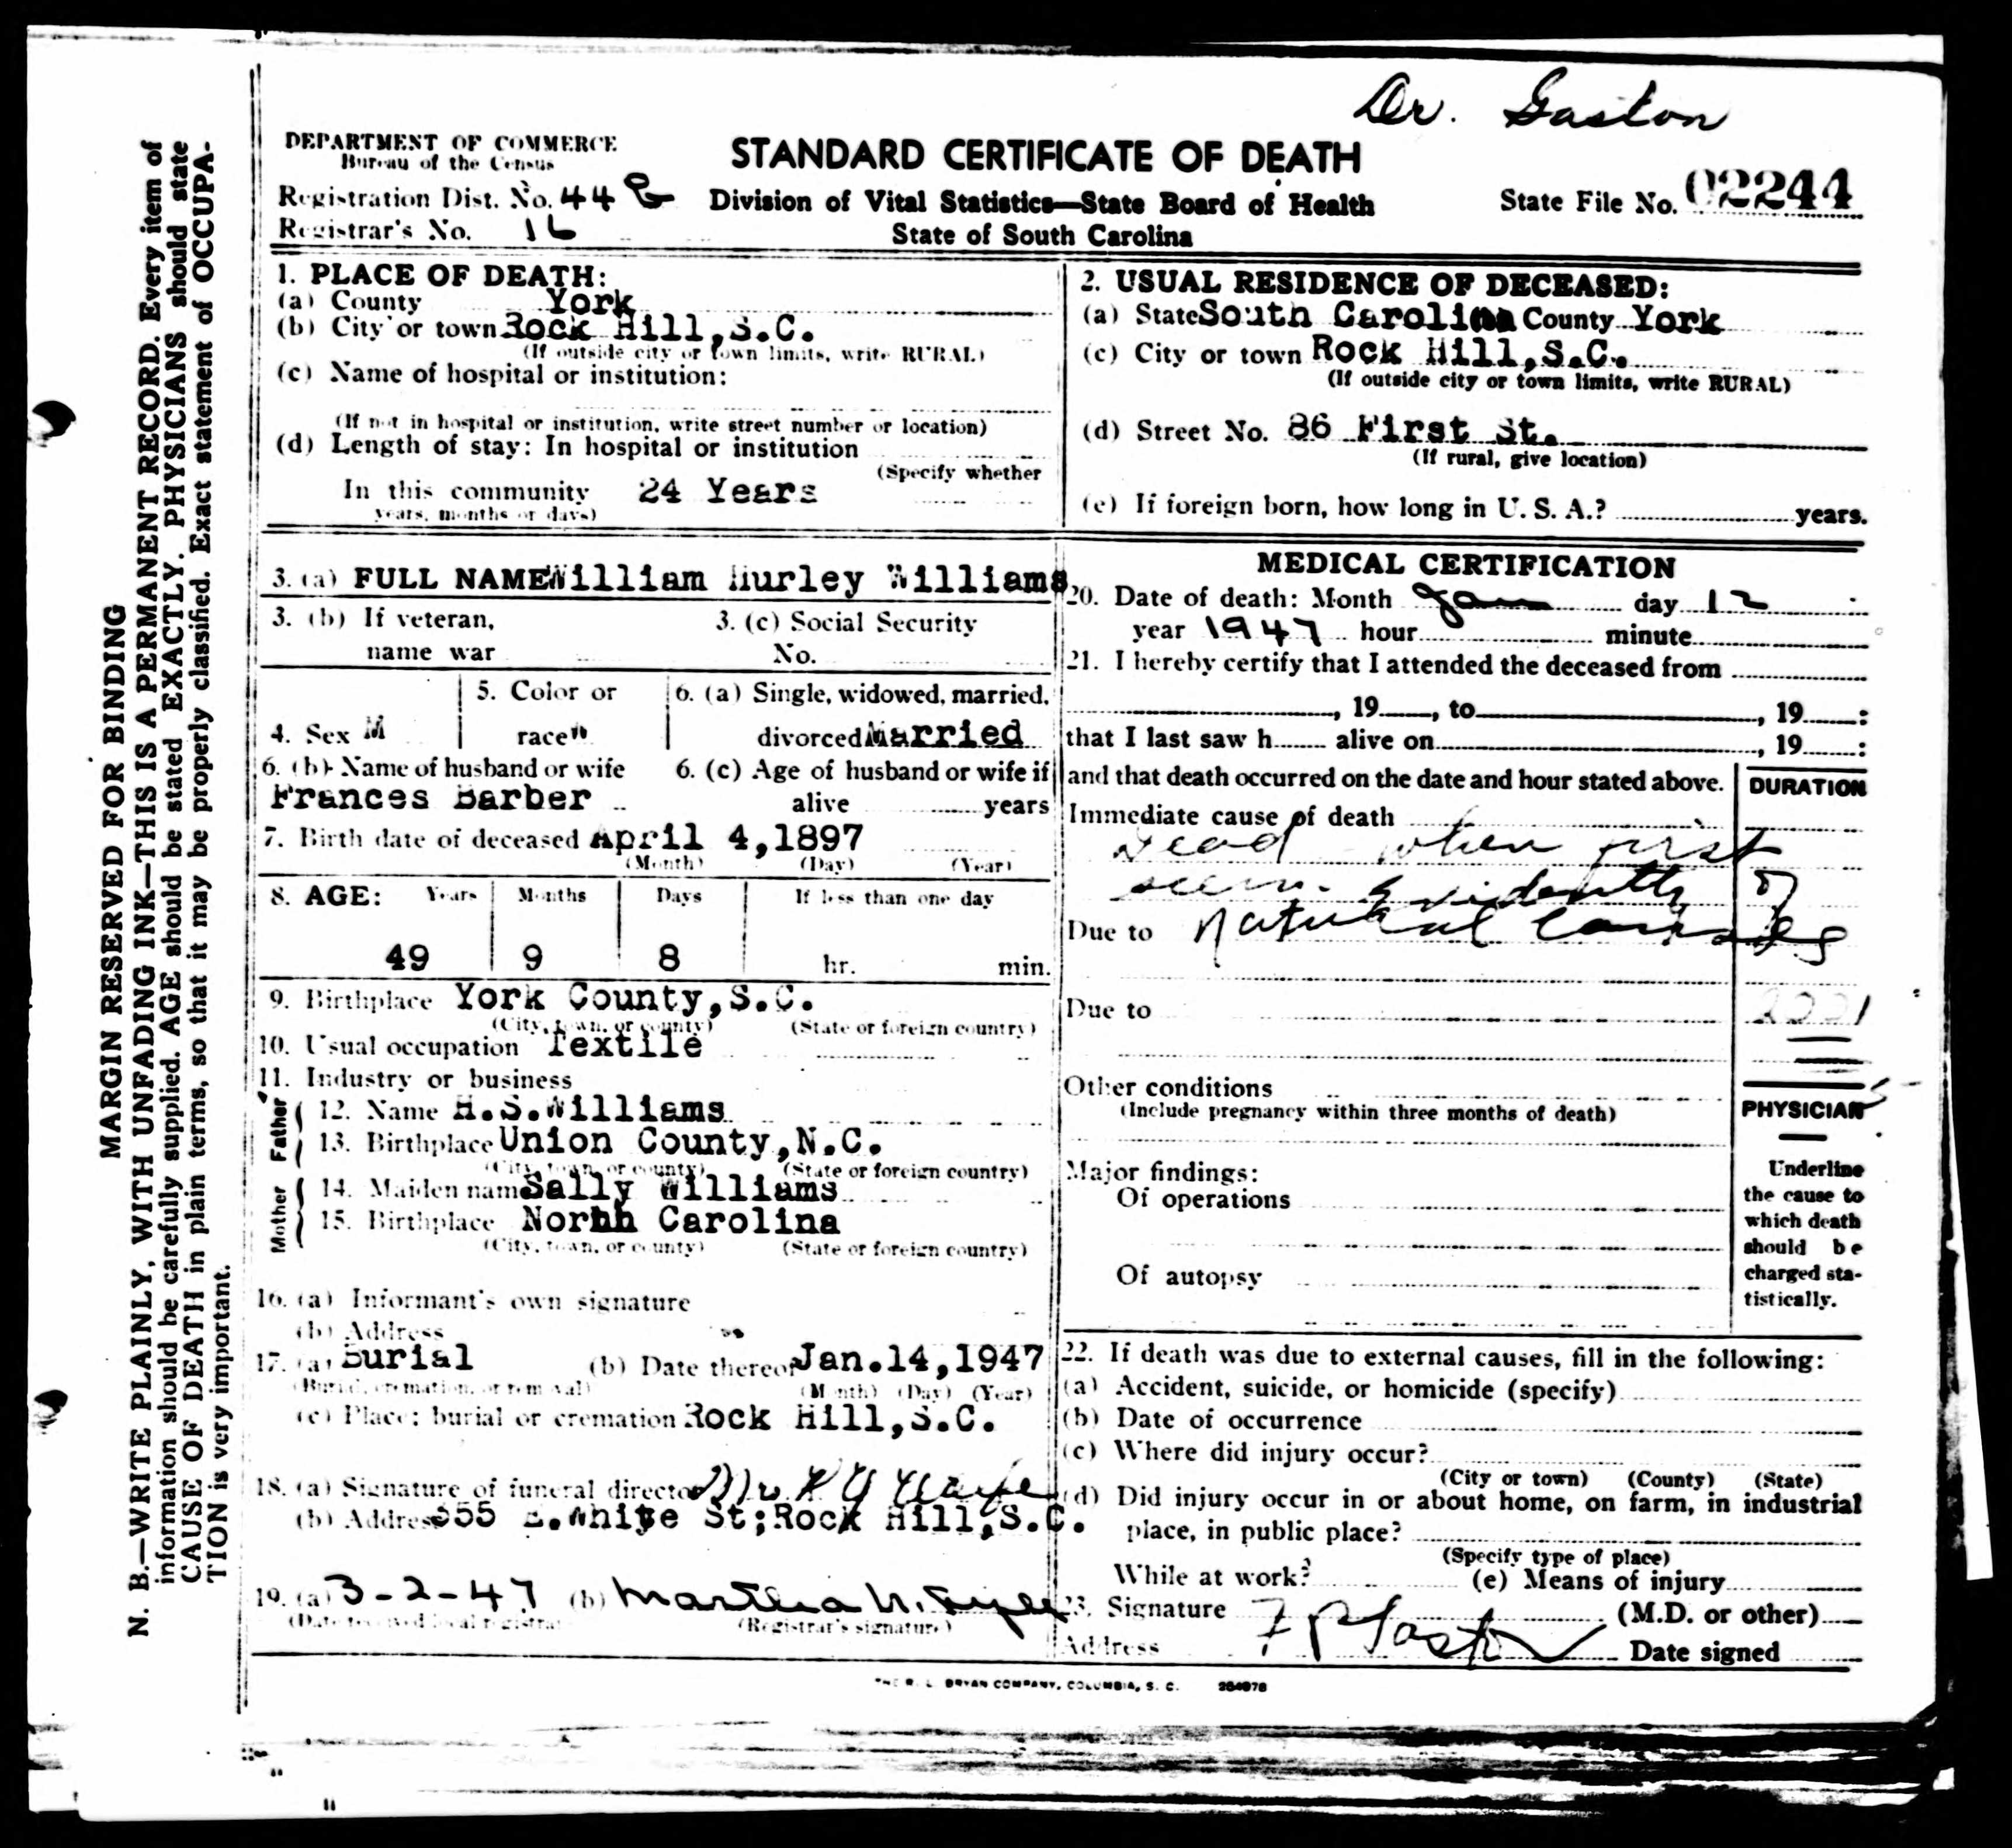 Dr. Gaston
DEPARTMENT OF COMMERCE
Bureau of the Census
STANDARD CERTIFICATE OF DEATH
Registration Dist. No. 44
Division of Vital Statistics—State Board of Health
State File No. 02244
Registrar's No. 16
State of South Carolina
MARGIN RESERVED FOR BINDING
N. B.—WRITE PLAINLY, WITH UNFADING INK—THIS IS A PERMANENT RECORD. Every item of
information should be carefully supplied. AGE should be stated EXACTLY. PHYSICIANS should state
CAUSE OF DEATH in plain terms, so that it may be properly classified. Exact statement of OCCUPA-
TION is very important.
1. PLACE OF DEATH:
(a) County York
(b) City or town Rock Hill, S.C.
(If outside city or town limits, write RURAL)
(c) Name of hospital or institution:
(If not in hospital or institution, write street number or location)
(d) Length of stay: In hospital or institution
(Specify whether
In this community 24 Years
years, months or days)
2. USUAL RESIDENCE OF DECEASED:
(a) State South Carolina County York
(c) City or town Rock Hill, S.C.
(If outside city or town limits, write RURAL)
(d) Street No. 86 First St.
(If rural, give location)
(e) If foreign born, how long in U. S. A.? years.
3. (a) FULL NAME William Hurley Williams
3. (b) If veteran, 3. (c) Social Security
name war No.
5. Color or 6. (a) Single, widowed, married,
4. Sex M race W divorced Married
6. (b) Name of husband or wife 6. (c) Age of husband or wife if
Frances Barber alive years
7. Birth date of deceased April 4, 1897
(Month) (Day) (Year)
8. AGE: Years Months Days If less than one day
49 9 8 hr. min.
9. Birthplace York County, S.C.
(City, town, or county) (State or foreign country)
10. Usual occupation Textile
11. Industry or business
Father
12. Name H.S. Williams
13. Birthplace Union County, N.C.
(City, town, or county) (State or foreign country)
Mother
14. Maiden name Sally Williams
15. Birthplace North Carolina
(City, town, or county) (State or foreign country)
16. (a) Informant's own signature
(b) Address
17. (a) Burial (b) Date thereof Jan. 14, 1947
(Burial, cremation, or removal) (Month) (Day) (Year)
(c) Place; burial or cremation Rock Hill, S.C.
18. (a) Signature of funeral director
(b) Address 355 E. White St; Rock Hill, S.C.
19. (a) 3-2-47 (b) Martha
(Date received local registrar) (Registrar's signature)
MEDICAL CERTIFICATION
20. Date of death: Month Jan day 12
year 1947 hour minute
21. I hereby certify that I attended the deceased from
, 19 , to , 19 :
that I last saw h alive on , 19 :
and that death occurred on the date and hour stated above.
DURATION
Immediate cause of death
Dead when first
seen. Evidently of
Due to Natural Causes
Due to
Other conditions
(Include pregnancy within three months of death)
PHYSICIAN
Major findings:
Of operations
Of autopsy
Underline
the cause to
which death
should be
charged sta-
tistically.
22. If death was due to external causes, fill in the following:
(a) Accident, suicide, or homicide (specify)
(b) Date of occurrence
(c) Where did injury occur?
(City or town) (County) (State)
(d) Did injury occur in or about home, on farm, in industrial
place, in public place?
(Specify type of place)
While at work? (e) Means of injury
23. Signature F P Gaston (M.D. or other)
Address Date signed
THE R. L. BRYAN COMPANY, COLUMBIA, S. C.